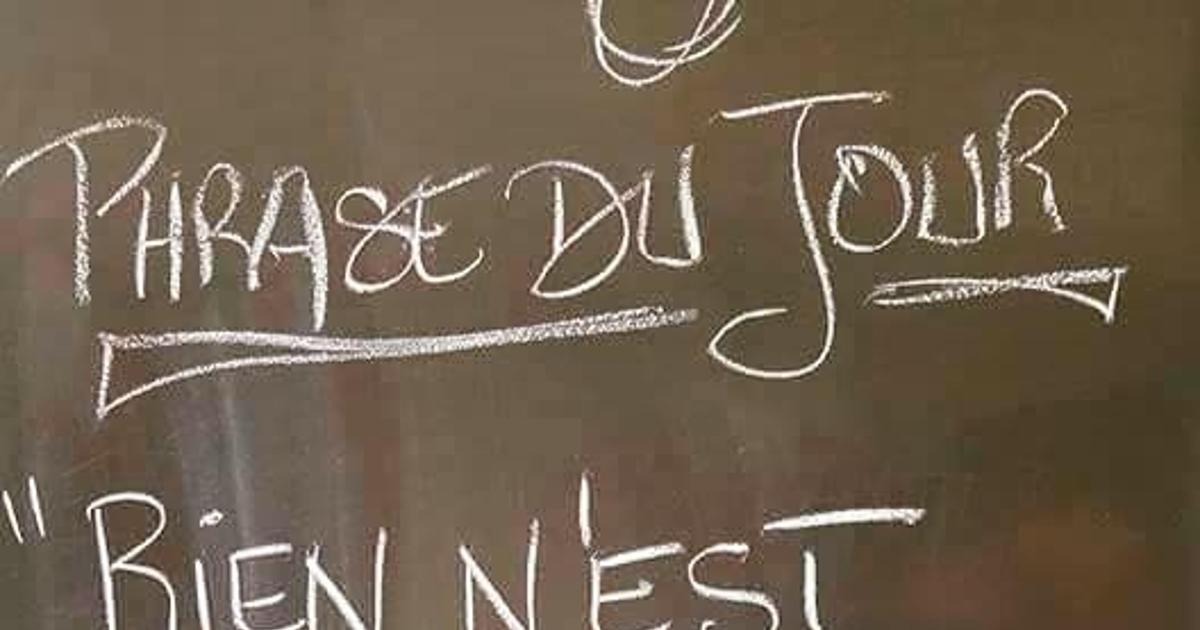 PHRASE DU JOUR
"BIEN N'EST